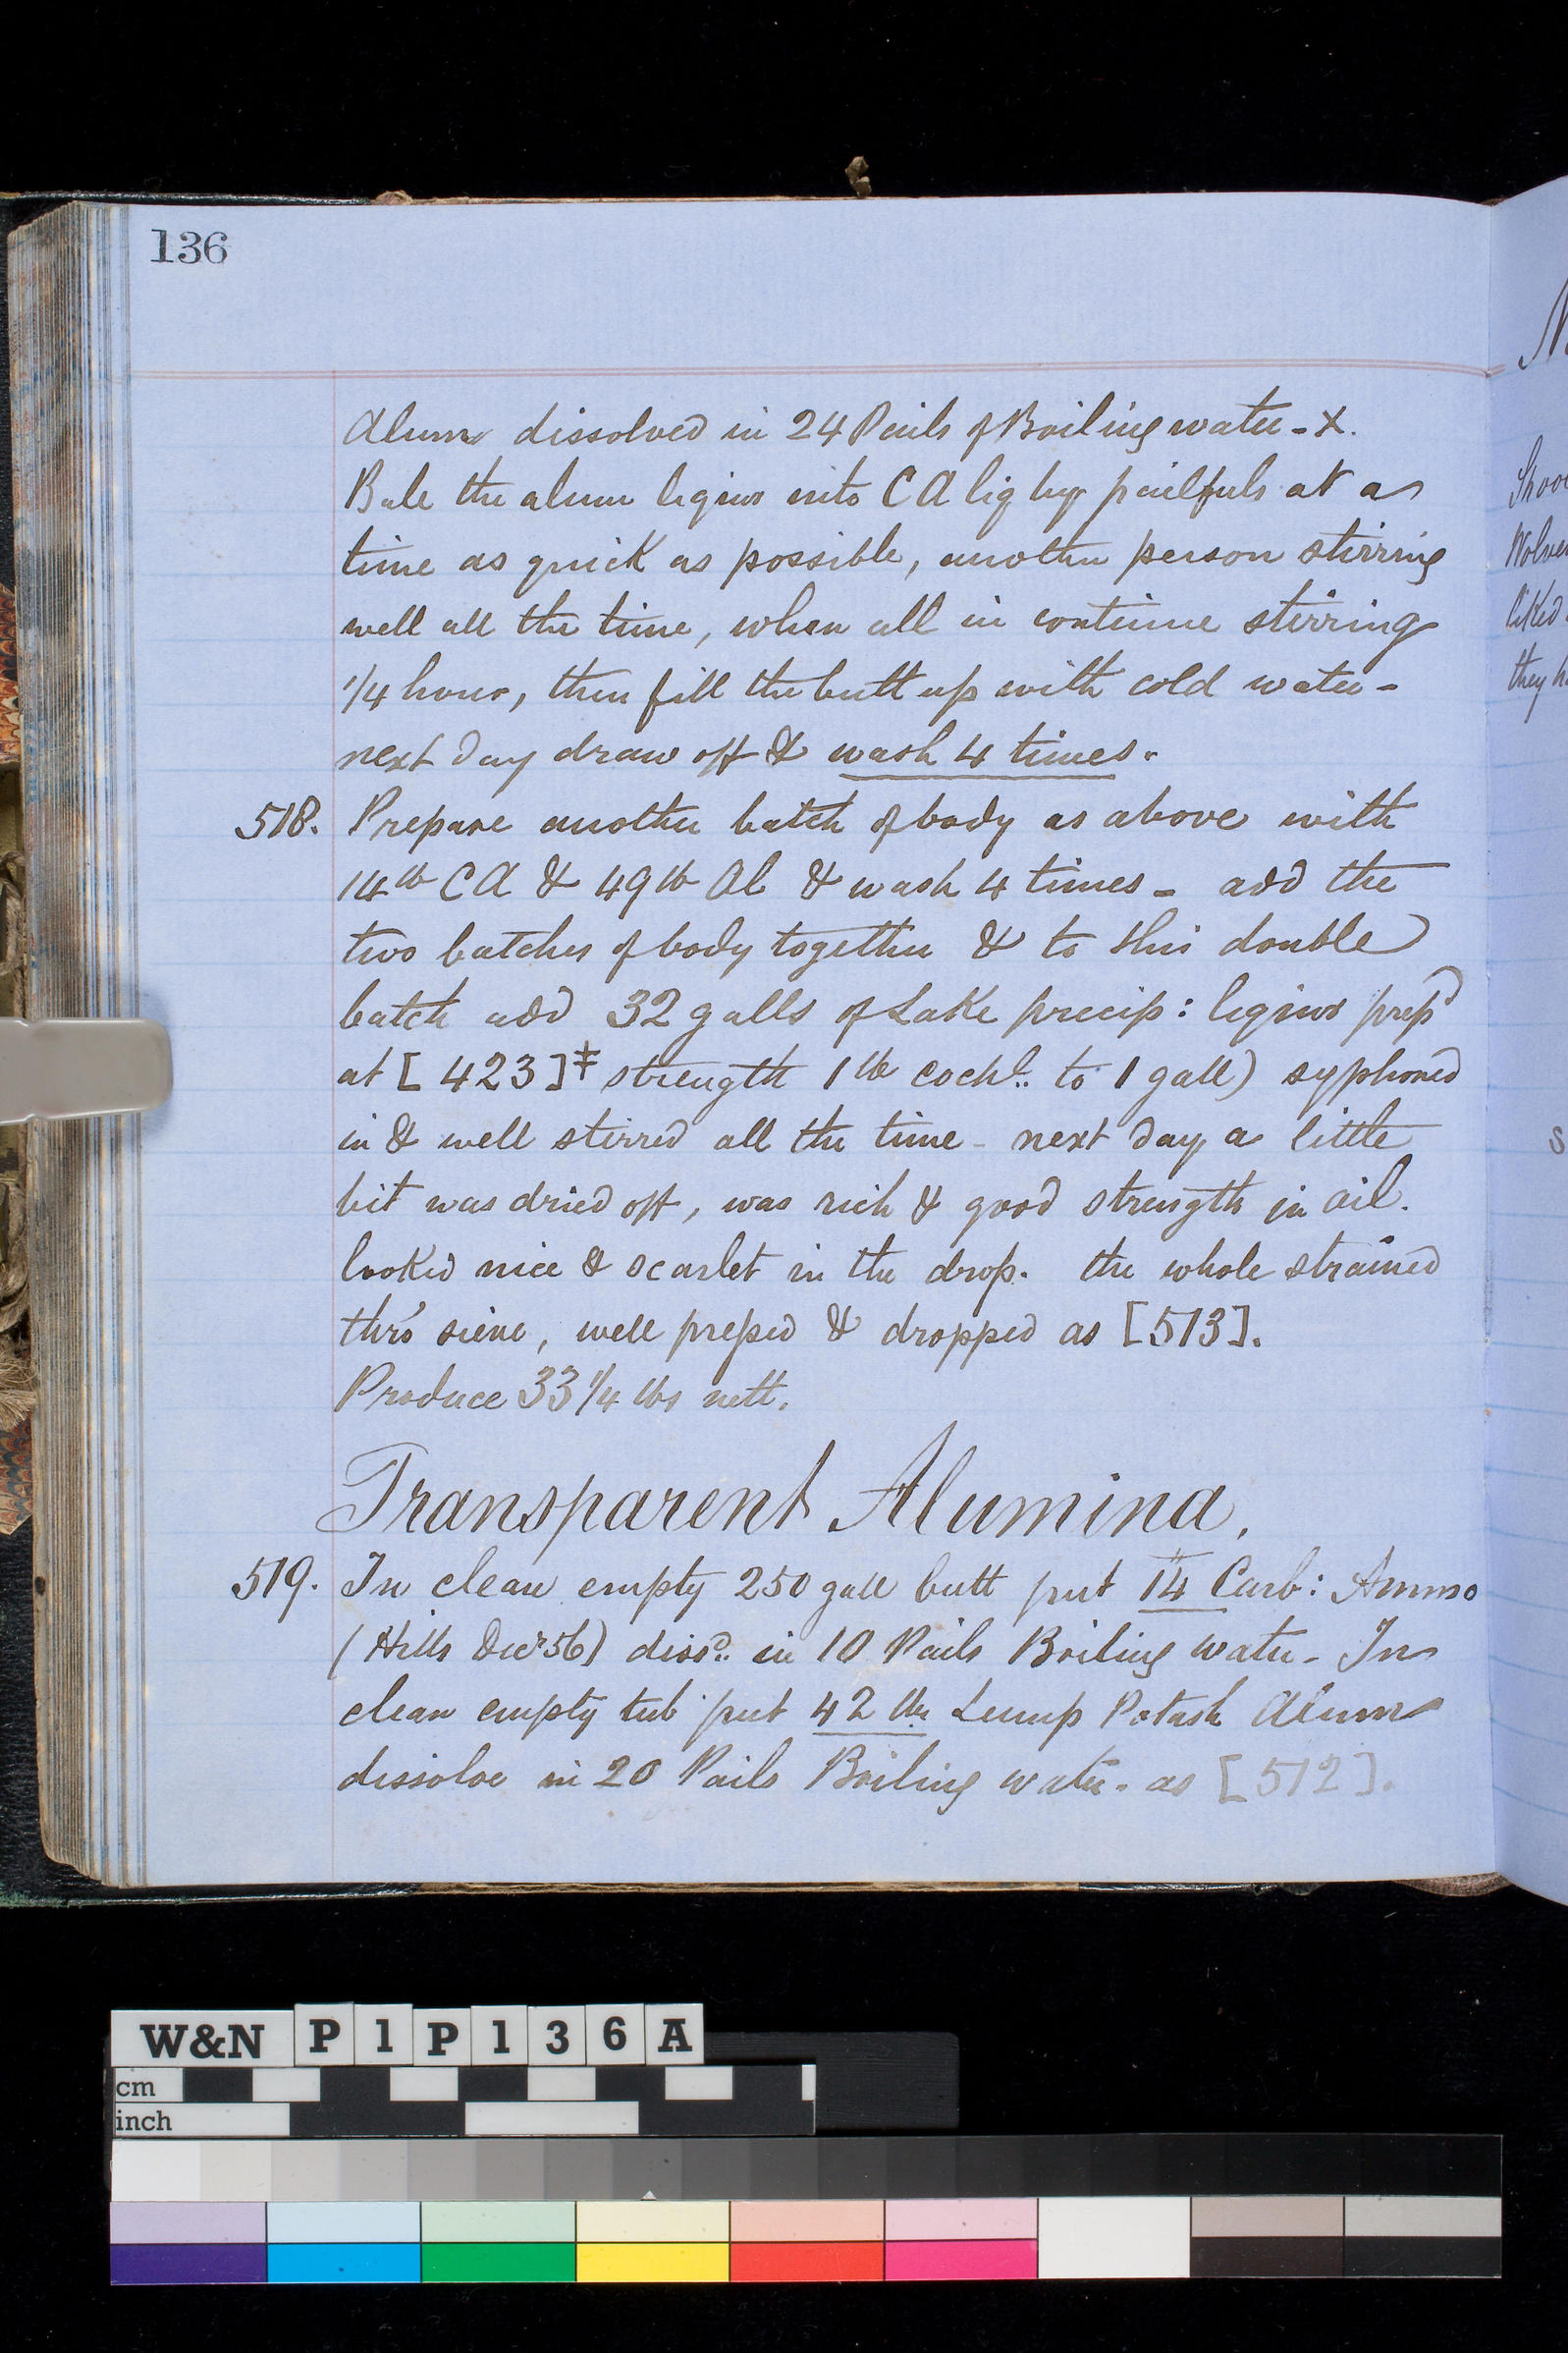 136
Alum dissolved in 24 Pails of Boiling water - X.
Bale the alum liquor into CA liq by pailfuls at a
time as quick as possible, another person stirring
well all the time, when all in continue stirring
1/4 hour, then fill the butt up with cold water -
next day draw off & wash 4 times.
518. Prepare another batch of body as above with
14 lb CA & 49 lb Al & wash 4 times - add the
two batches of body together & to this double
batch add 32 galls of Lake precip: liquor prepd
at [423]‡ strength 1 lb cochl. to 1 gall) syphoned
in & well stirred all the time - next day a little
bit was dried off, was rich & good strength in oil.
looked nice & scarlet in the drop. the whole strained
thro' sieve, well pressed & dropped as [513].
Produce 33 1/4 lbs nett.
Transparent Alumina.
519. In clean empty 250 gall butt put 14 lb Carb: Ammo
(Hills Decr 56) dissd. in 10 Pails Boiling water - In
clean empty tub put 42 lbs Lump Potash Alum
dissolve in 20 Pails Boiling water. as [512].
Shoo
Wolve
liked
they h
W&N P1P136A
cm
inch